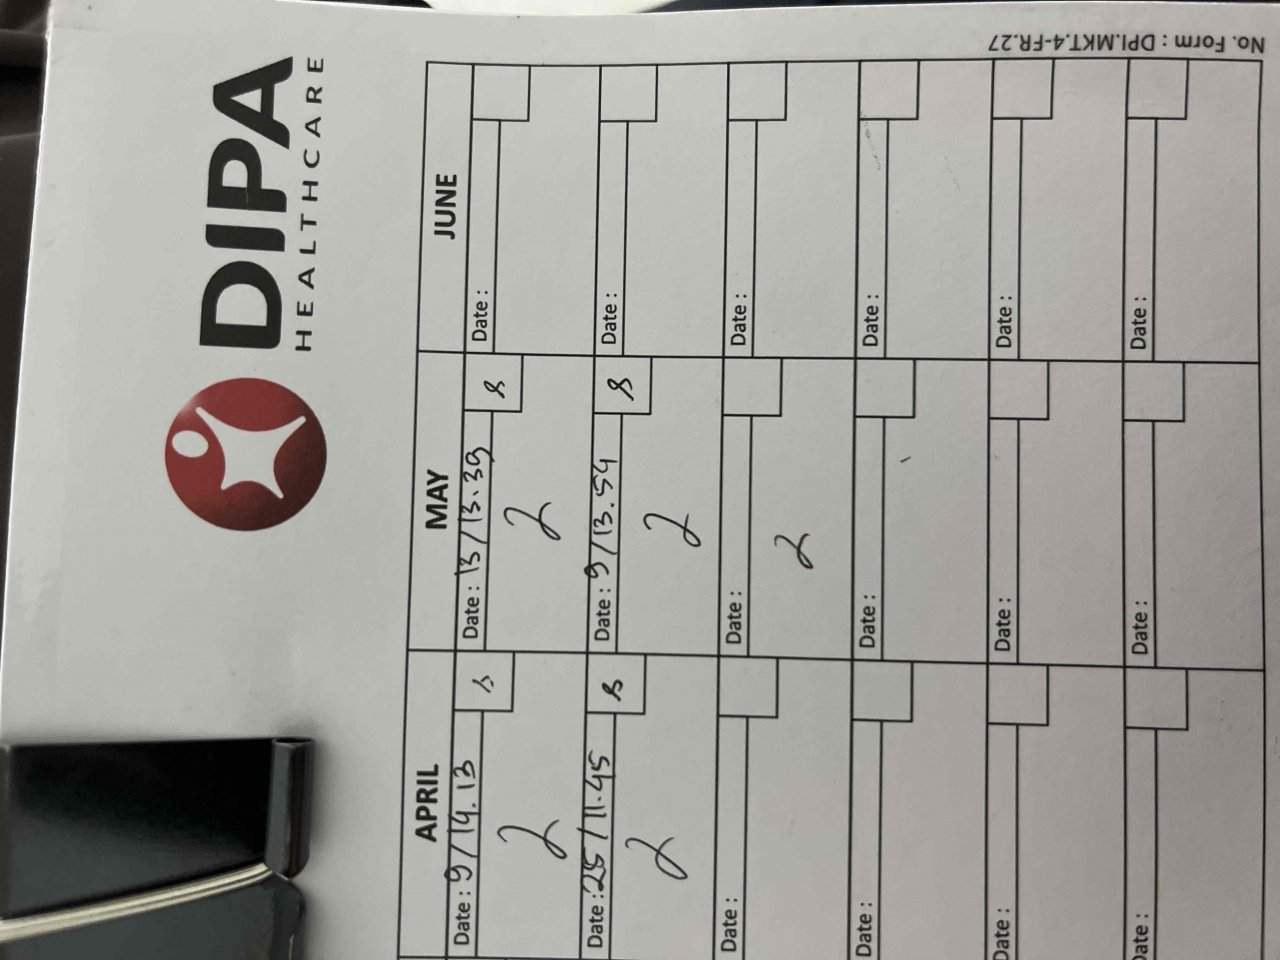 No. Form : DPI.MKT.4-FR.27
DIPA
HEALTHCARE
APRIL MAY JUNE
Date : 9/14.13 Date : 13/13.39 Date :
2 2
Date : 25/11.45 Date : 9/13.54 Date :
2 2
Date : Date : Date :
2
Date : Date : Date :
Date : Date : Date :
Date : Date : Date :